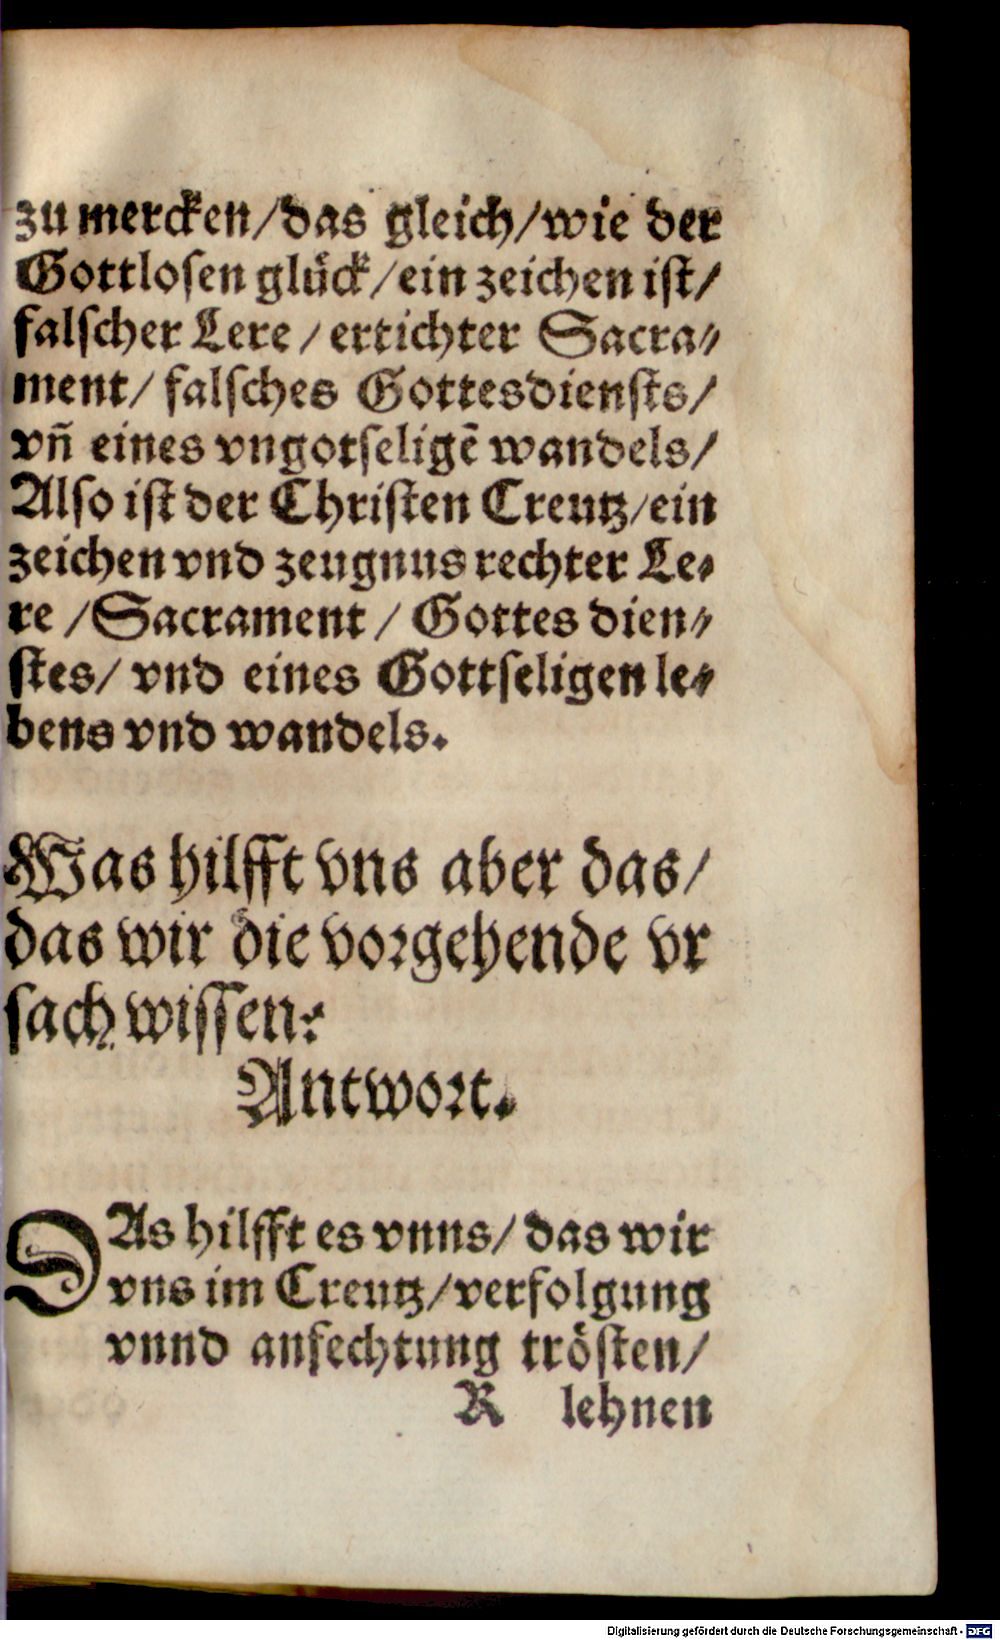 zu mercken/das gleich/wie der
Gottlosen glück/ein zeichen ist/
falscher Lere/ertichter Sacra⸗
ment/falsches Gottesdiensts/
vñ eines vngotseligē wandels/
Also ist der Christen Creutz/ein
zeichen vnd zeugnus rechter Le⸗
re/Sacrament/Gottes dien⸗
stes/vnd eines Gottseligen le⸗
bens vnd wandels.
Was hilfft vns aber das/
das wir die vorgehende vr
sach wissen?
Antwort.
DAs hilfft es vnns/das wir
vns im Creutz/verfolgung
vnnd anfechtung trösten/
R lehnen
Digitalisierung gefördert durch die Deutsche Forschungsgemeinschaft - DFG